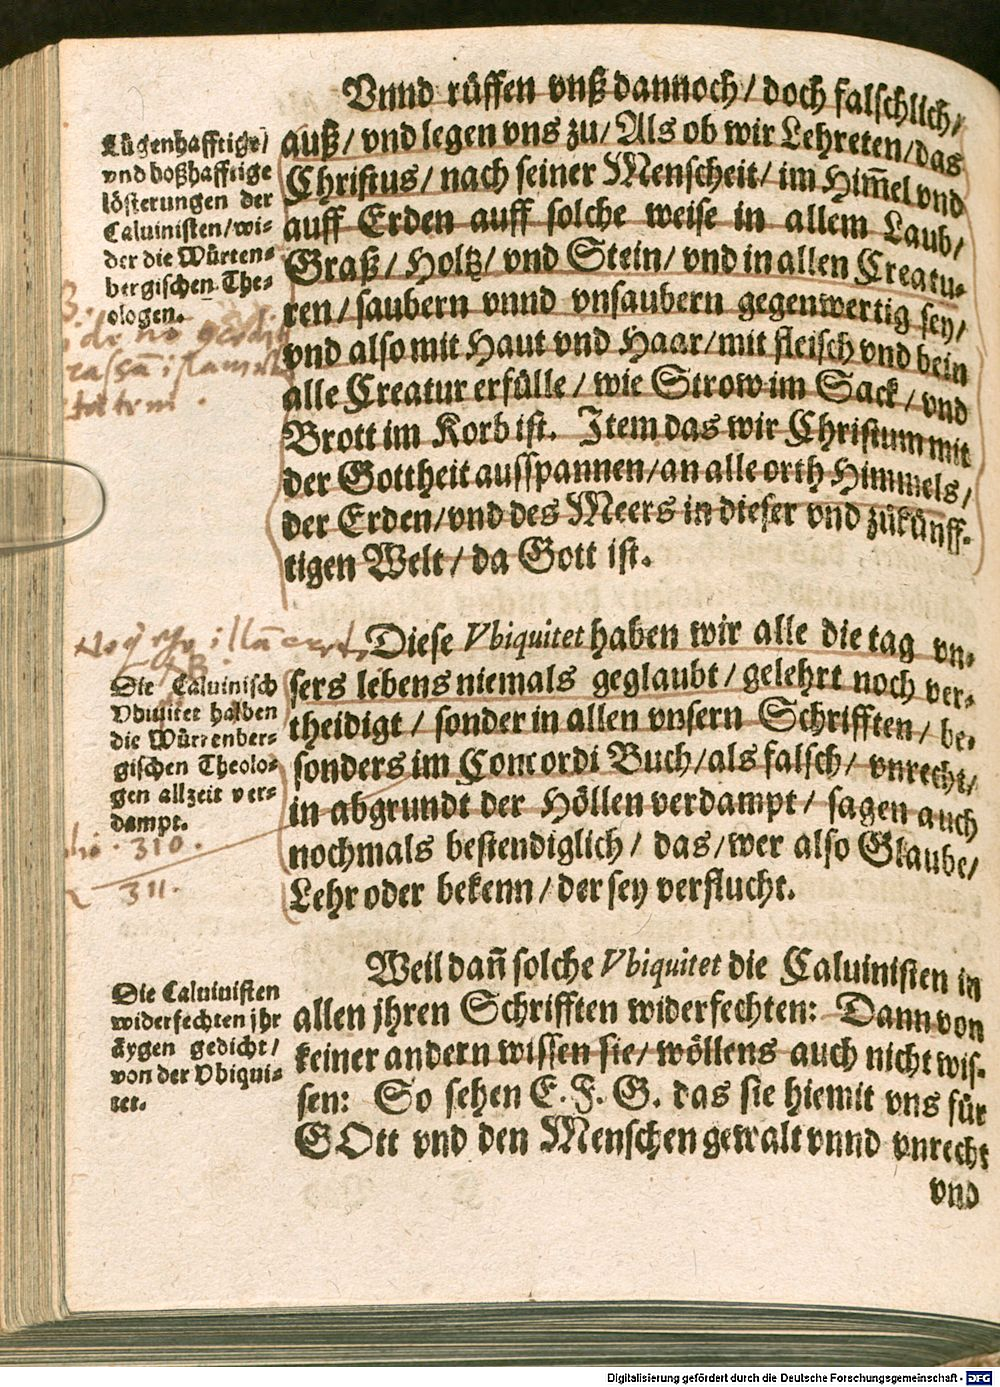 Vnnd rüffen vnß dannoch / doch falschlich /
auß / vnd legen vns zu / Als ob wir Lehreten / das
Christus / nach seiner Menscheit / im Him̄el vnd
auff Erden auff solche weise in allem Laub /
Graß / Holtz / vnd Stein / vnd in allen Creatu-
ren / saubern vnnd vnsaubern gegenwertig sey /
vnd also mit Haut vnd Haar / mit fleisch vnd bein
alle Creatur erfülle / wie Strow im Sack / vnd
Brott im Korb ist. Item das wir Christum mit
der Gottheit ausspannen / an alle orth Himmels /
der Erden / vnd des Meers in dieser vnd zükünff-
tigen Welt / da Gott ist.
Lügenhafftige /
vnd boßhafftige
lösterungen der
Caluinisten / wi-
der die Würten-
bergischen The-
ologen.
Diese Vbiquitet haben wir alle die tag vn-
sers lebens niemals geglaubt / gelehrt noch ver-
theidigt / sonder in allen vnsern Schrifften / be-
sonders im Concordi Buch / als falsch / vnrecht /
in abgrundt der Höllen verdampt / sagen auch
nochmals bestendiglich / das / wer also Glaube /
Lehr oder bekenn / der sey verflucht.
Die Caluinisch
Vbiquitet halben
die Würtenber-
gischen Theolo-
gen allzeit ver-
dampt.
310.
311.
Weil dan̄ solche Vbiquitet die Caluinisten in
allen jhren Schrifften widerfechten: Dann von
keiner andern wissen sie / wöllens auch nicht wis-
sen: So sehen E. F. G. das sie hiemit vns für
GOtt vnd den Menschen gewalt vnnd vnrecht
vnd
Die Caluinisten
widerfechten jhr
äygen gedicht /
von der Vbiqui-
tet.
Digitalisierung gefördert durch die Deutsche Forschungsgemeinschaft - DFG